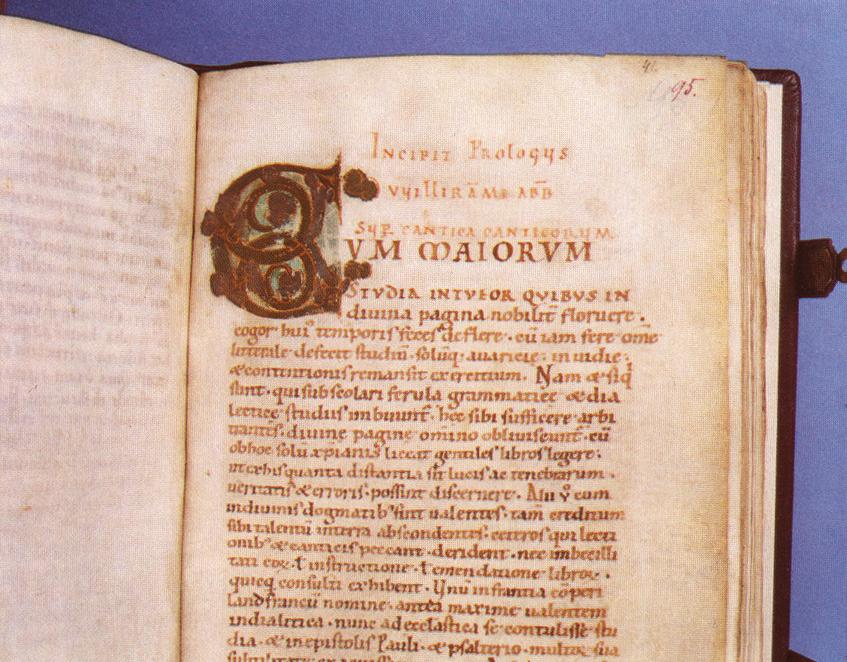 41.
95.
INCIPIT PROLOGUS
VUILLIRĀMI ABB
SUP CANTICA CANTICORUM
CUM MAIORVM
STVDIA INTVEOR QVIBUS IN
diuina pagina nobilit̄ floruere ·
cogor hui᾽ temporis feces deflere · cū iam fere om̄e
litterale defecit studiū · solūq; auaricie · inuidie ·
& contentionis remansit exercitium · Nam & siq̇
sunt · qui sub scolari ferula grammaticę & dia
lecticę studiis imbuunt᷑ · hec sibi sufficere arbi
trantes · diuine pagine om̄ino obliuiscunt᷑ · cū
ob hoc solū xp̄ianis liceat gentiles libros legere ·
ut ex his quanta distantia sit lucis ac tenebrarum ·
ueritatis & erroris · possint discernere · Alii v̊ cum
in diuinis dogmatib᾽ sint ualentes · tam̄ creditum
sibi talentū in terra abscondentes · ceteros qui in lecti
onib᾽ & canticis peccant · derident · nec imbecilli
tati eoꝝ · ł instructione · ł emendatione libroꝝ ·
quicq̄ consulti exhibent · Vnū in francia cōperi
Landfrancū nomine · antea maxime ualentem
in dialetica · nunc ad ecclastica se contulisse stu
dia · & in epistolis Pauli · & psalterio · multoꝝ sua